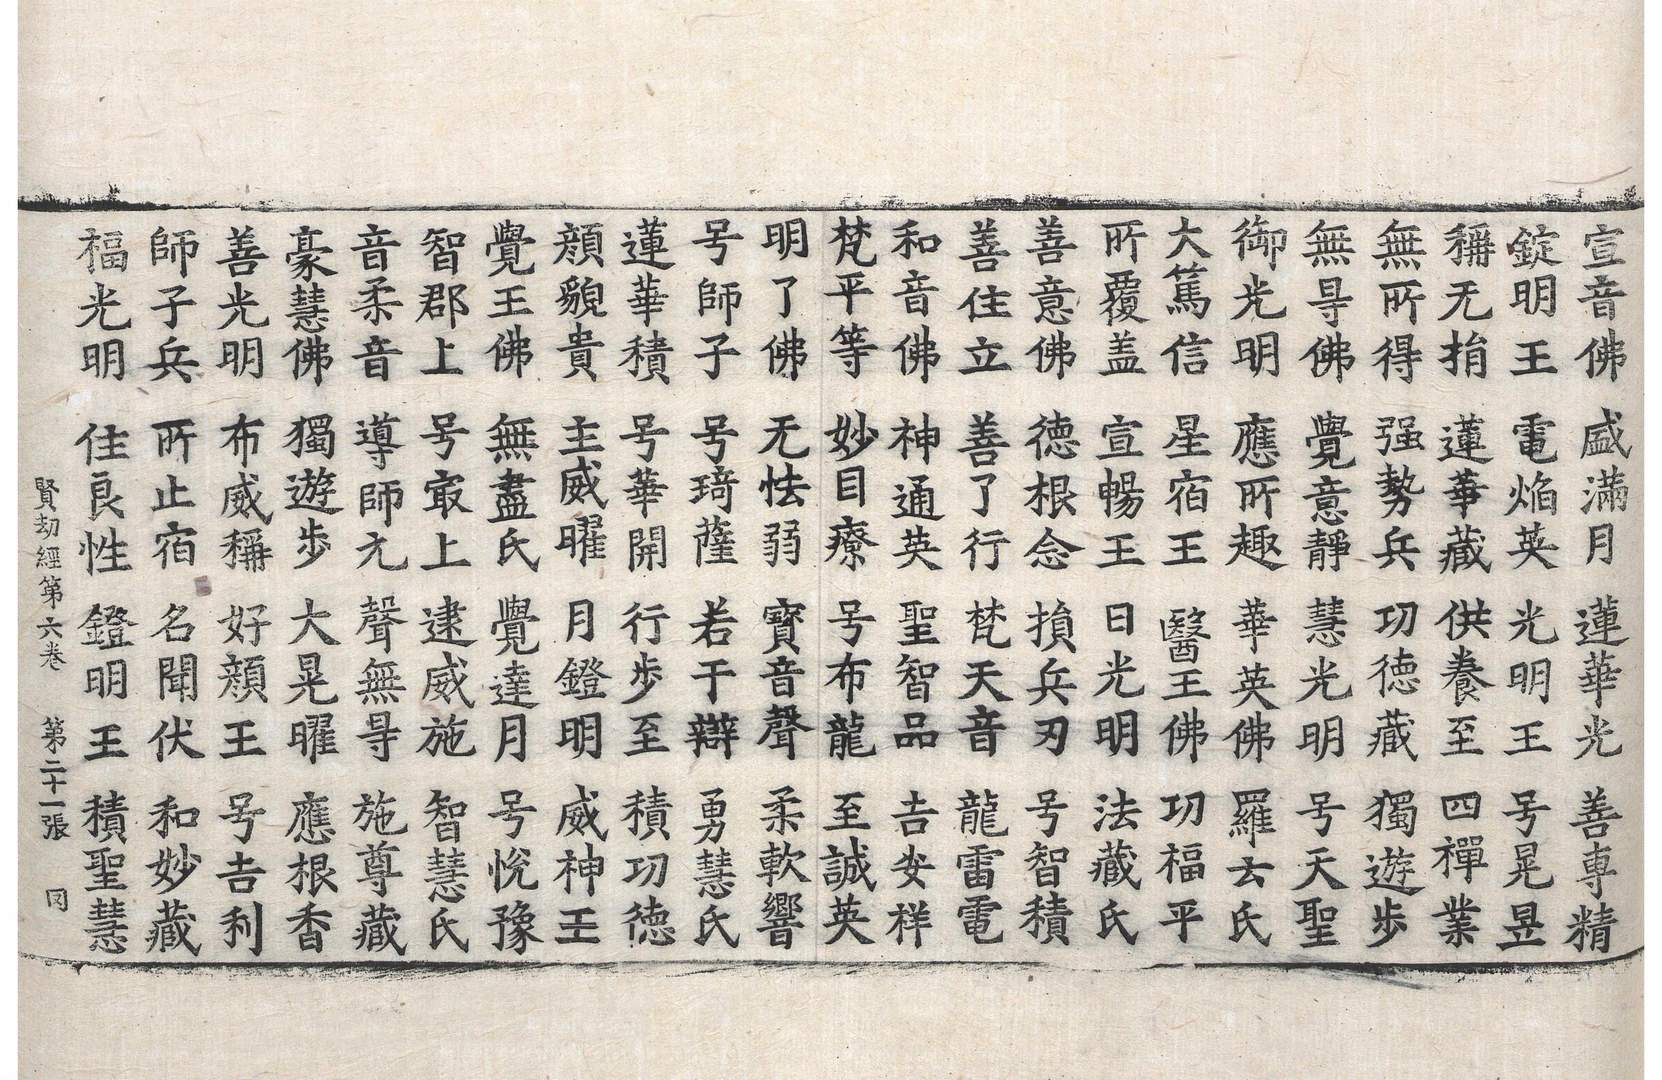 宣音佛 盛滿月 蓮華光 善專精
錠明王 電焰英 光明王 号晃昱
稱无損 蓮華藏 供養至 四禪業
無所得 强勢兵 功德藏 獨遊步
無㝵佛 覺意靜 慧光明 号天聖
御光明 應所趣 華英佛 羅云氏
大篤信 星宿王 醫王佛 功福平
所覆盖 宣暢王 日光明 法藏氏
善意佛 德根念 損兵刃 号智積
善住立 善了行 梵天音 龍雷電
和音佛 神通英 聖智品 吉安祥
梵平等 妙目療 号布龍 至誠英
明了佛 无怯弱 寳音聲 柔軟響
号師子 号琦薩 若干辯 勇慧氏
蓮華積 号華開 行步至 積功德
顔貌貴 主威曜 月鐙明 威神王
覺王佛 無盡氏 覺達月 号悅豫
智郡上 号㝡上 逮威施 智慧氏
音柔音 導師尢 聲無㝵 施尊藏
豪慧佛 獨遊步 大晃曜 應根香
善光明 布威稱 好顔王 号吉利
師子兵 所止宿 名聞伏 和妙藏
福光明 住良性 鐙明王 積聖慧
賢劫經第六卷 第二十一張 冈